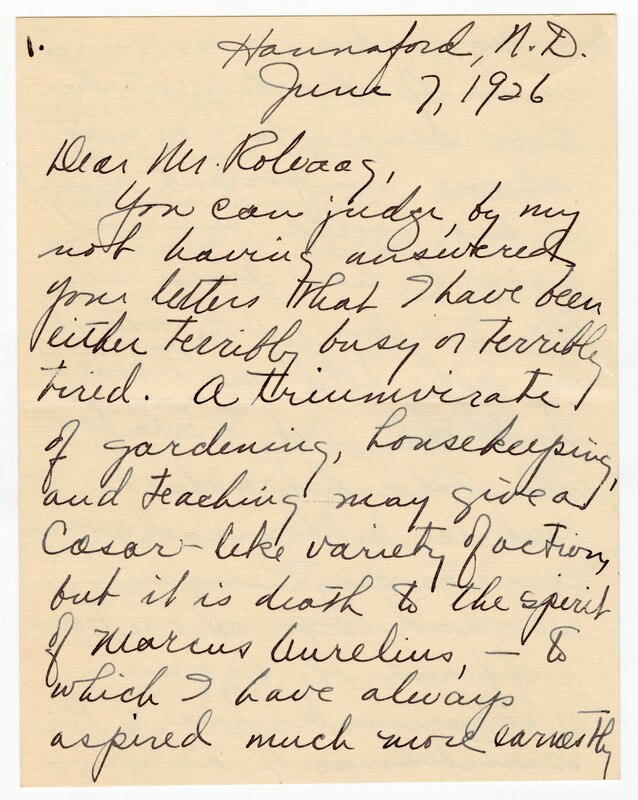 1.
Hannaford, N.D.
June 7, 1926
Dear Mr. Rolvaag,
You can judge, by my
not having answered
your letters that I have been
either terribly busy or terribly
tired. A triumvirate
of gardening, housekeeping,
and teaching may give a
Cæsar-like variety of action,
but it is death to the spirit
of Marcus Aurelius, – to
which I have always
aspired much more earnestly